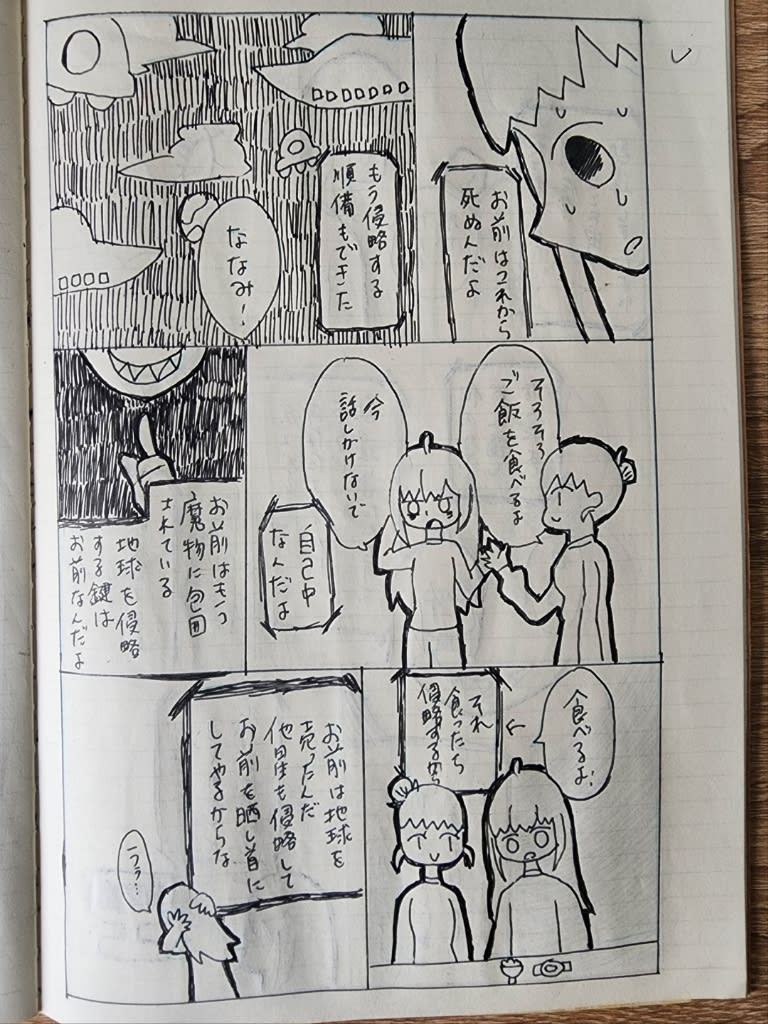 お前はこれから
死ぬんだよ
もう侵略する
順備もできた
ななみ！
そろそろ
ご飯を食べるよ
今
話しかけないで
自己中
なんだよ
お前はもう
魔物に包囲
されている
地球を侵略
する鍵は
お前なんだよ
食べるよ
それ
食ったら
侵略するから
お前は地球を
売ったんだ
他星も侵略して
お前を晒し首に
してやるからな